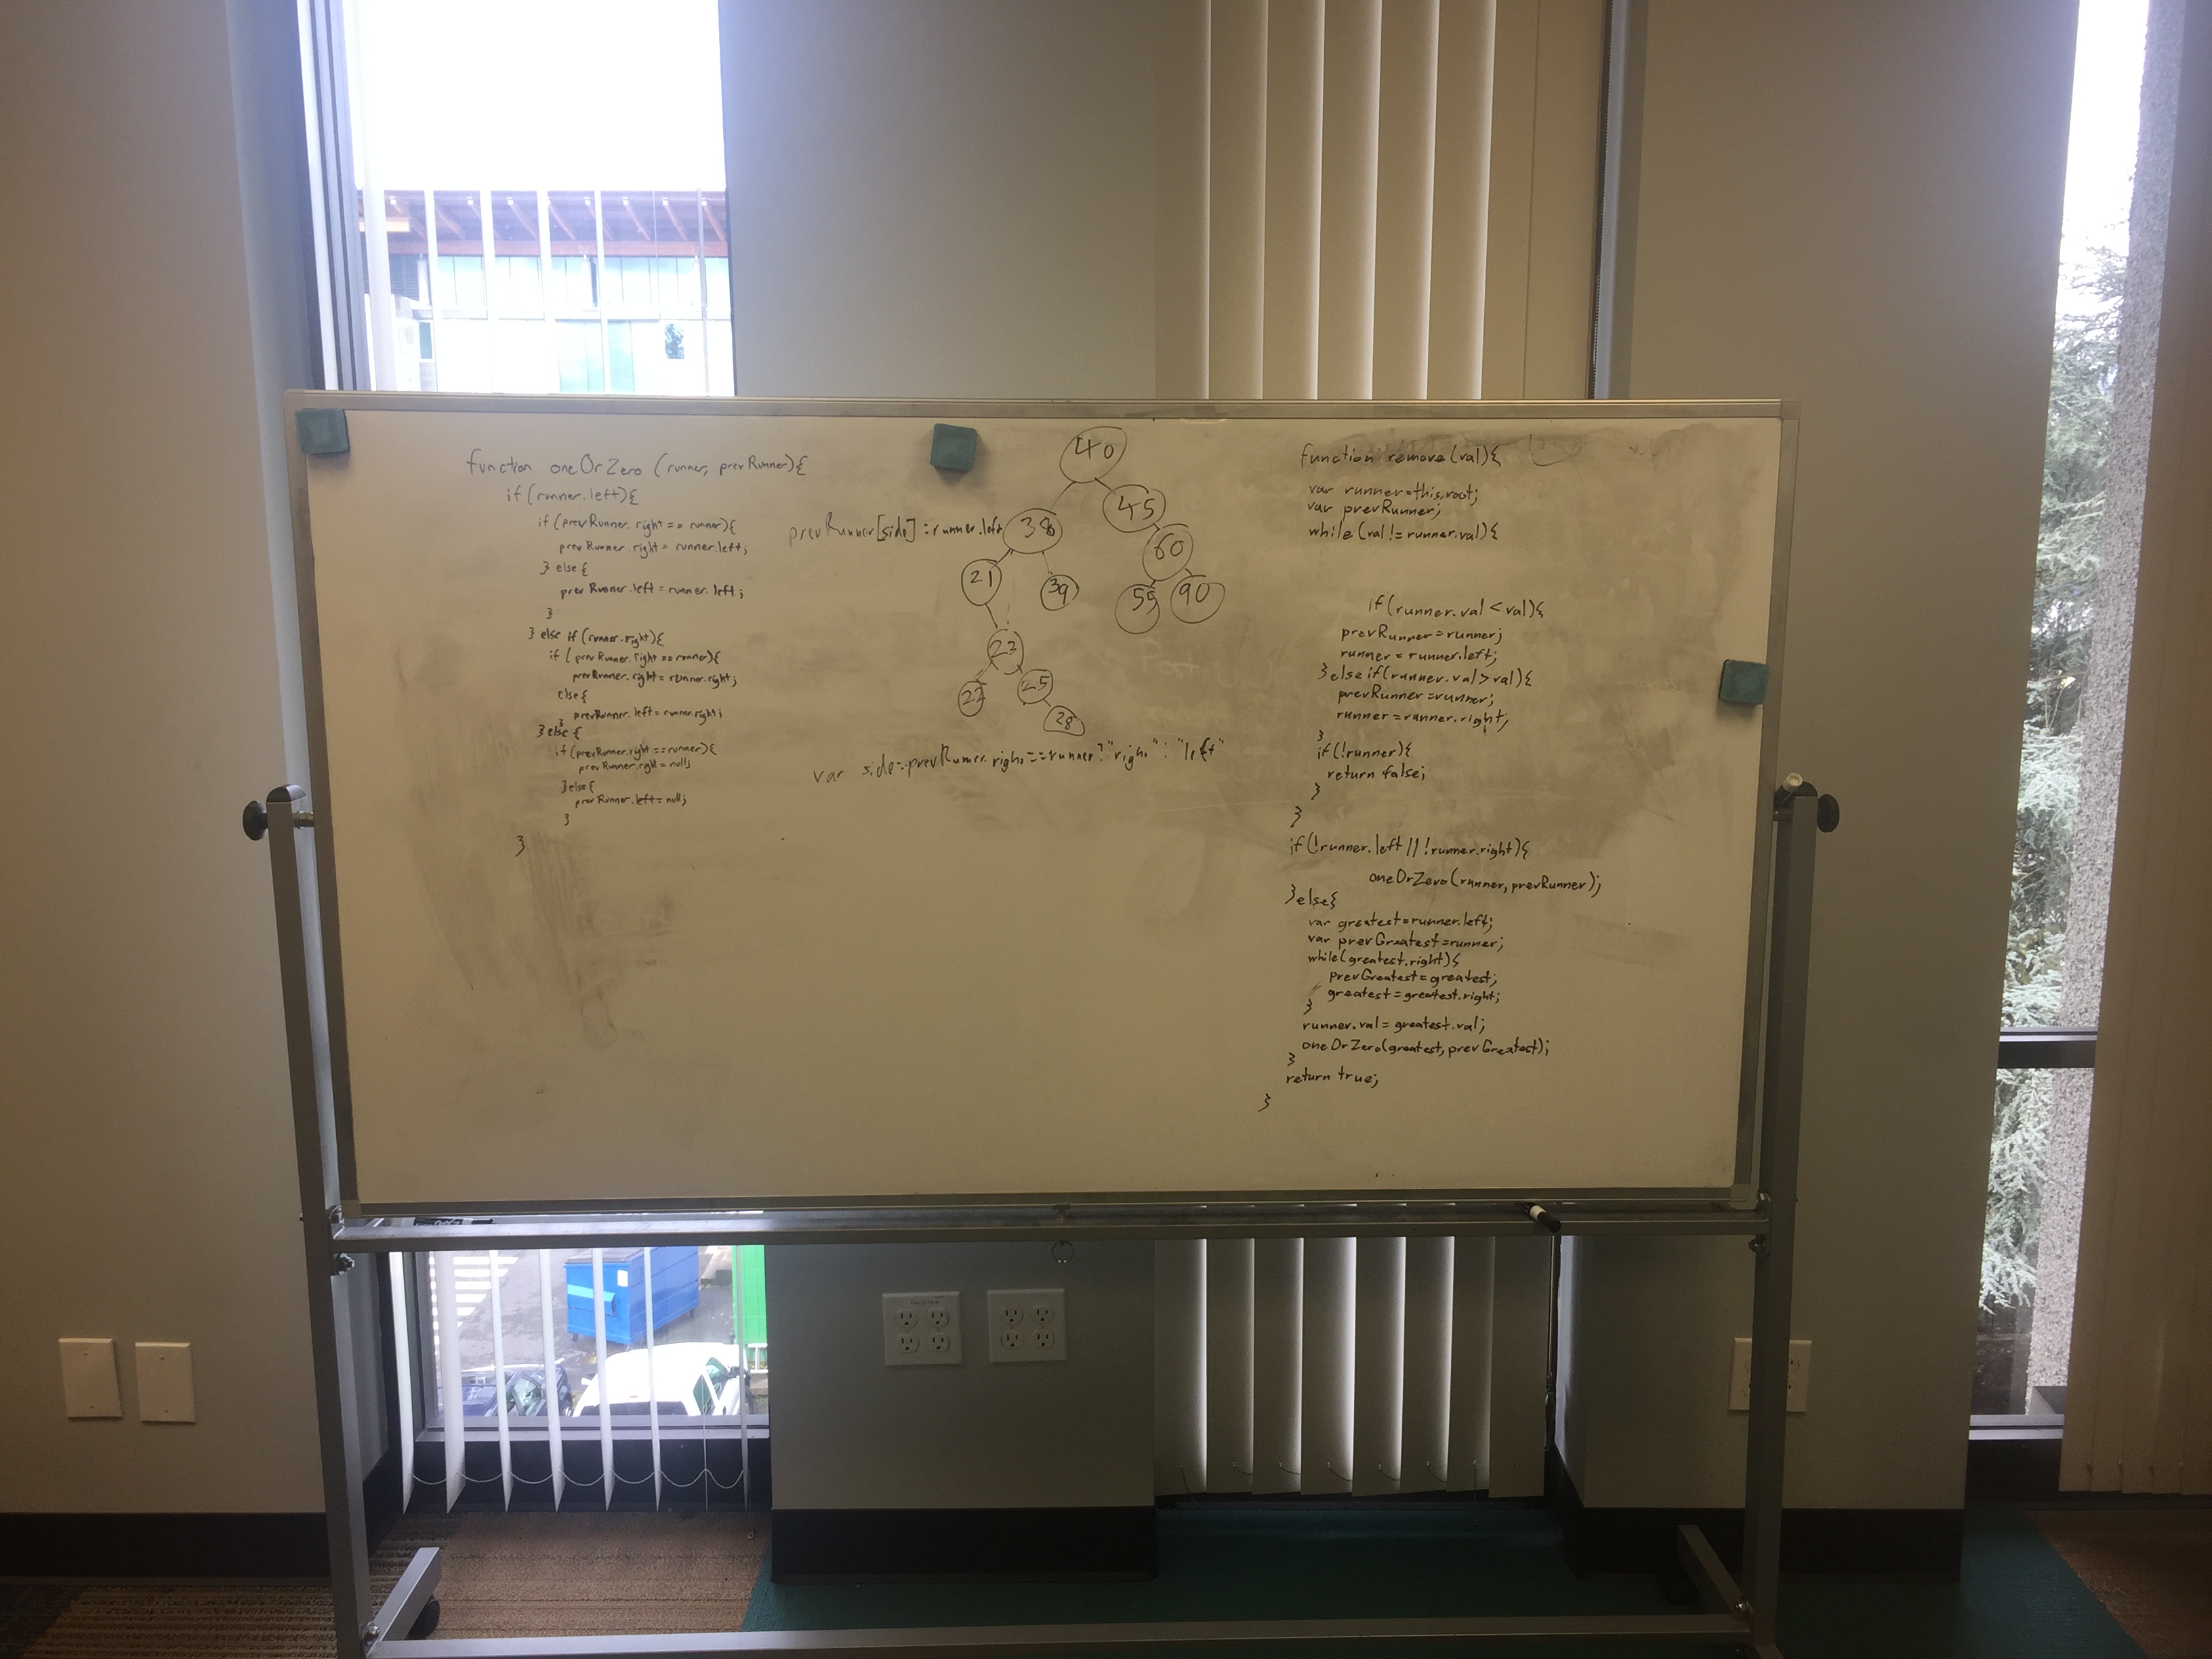 function oneOrZero (runner, prevRunner){
if (runner.left){
if (prevRunner.right == runner){
prevRunner.right = runner.left;
} else {
prevRunner.left = runner.left;
}
} else if (runner.right){
if (prevRunner.right == runner){
prevRunner.right = runner.right;
else {
prevRunner.left = runner.right;
}
} else {
if (prevRunner.right == runner){
prevRunner.right = null;
} else {
prevRunner.left = null;
}
}
40
45
prevRunner[side] = runner.left
38
60
21
39
59
90
23
22
25
28
var side = prevRunner.right == runner ? "right" : "left"
function remove(val){
var runner=this.root;
var prevRunner;
while (val != runner.val){
if (runner.val < val){
prevRunner = runner;
runner = runner.left;
} else if (runner.val > val){
prevRunner = runner;
runner = runner.right;
}
if (!runner){
return false;
}
}
if (!runner.left || !runner.right){
oneOrZero(runner, prevRunner);
} else {
var greatest = runner.left;
var prevGreatest = runner;
while(greatest.right){
prevGreatest = greatest;
greatest = greatest.right;
}
runner.val = greatest.val;
oneOrZero(greatest, prevGreatest);
}
return true;
}